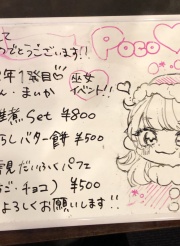 して
めでとうございます!!
Poco♡
年1発目♡
ん・まいか
巫女
イベント!!
雑煮 Set ¥800
らしバター餅 ¥500
雪見だいふくパフェ
ご・チョコ) ¥500
よろしくお願いします!!